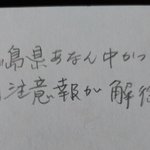 島県あなん中かつ
注意報が解